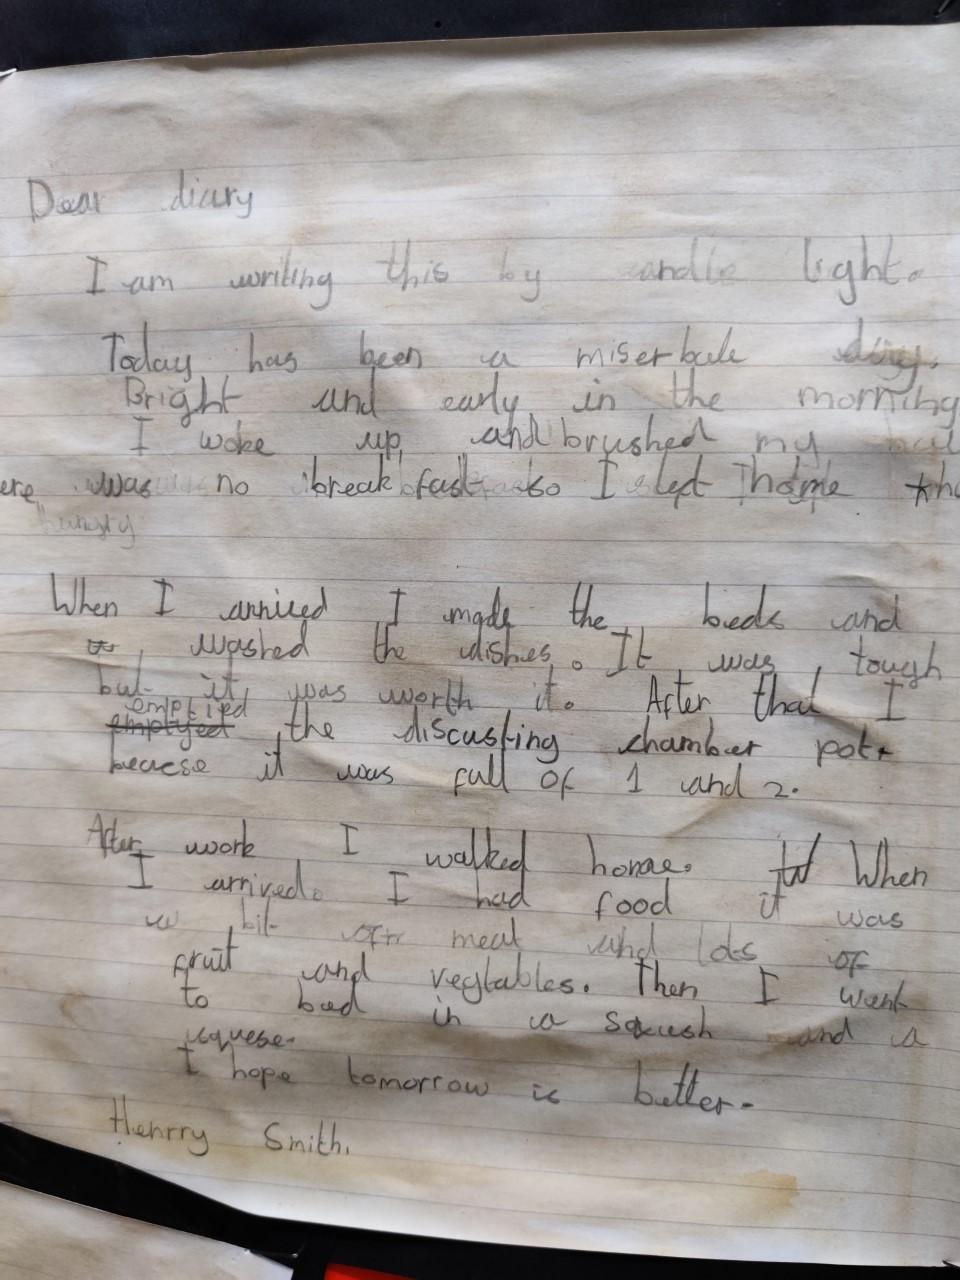 Dear diary
I am writing this by candle light.
Today has been a miserbule day.
Bright and early in the morning
I woke up, and brushed my
ere was no breakfast so I left home
hungry
When I arrived I made the beds and
washed the dishes. It was tough
but it was worth it. After that I
emptied
emptyed the discusting chamber pot
becuese it was full of 1 and 2.
After work I walked home. W When
I arrived. I had food it was
a bit off meat and lots of
fruit and vegtables. Then I went
to bed in a squush and a
squese.
I hope tomorrow is better.
Henrry Smith.